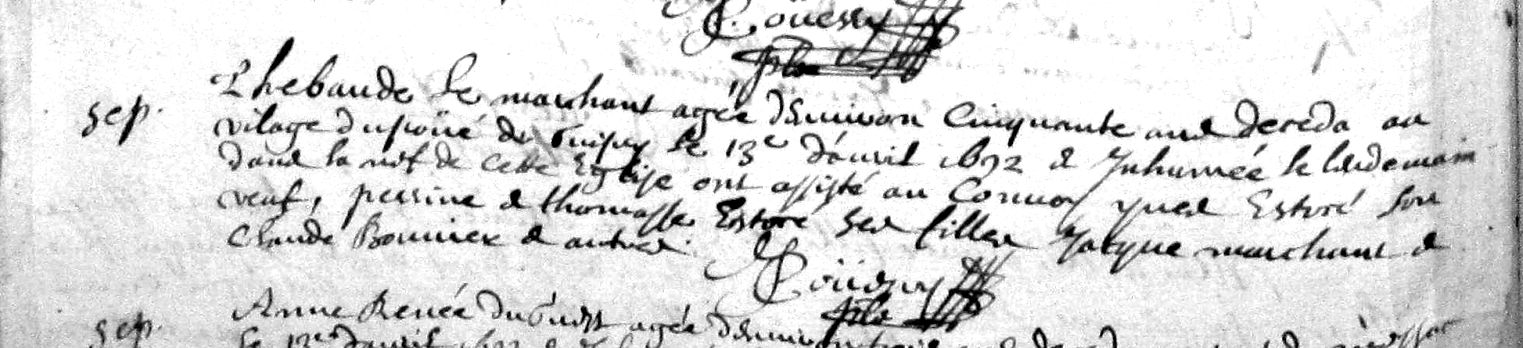 sep.
Thebaude le marchant agée d'environ cinquante ans deceda au
vilage du de Guipry le 13e d'avril 1692 & Inhumée le lendemain
dans la nef de cette Eglise ont assisté au Convoy yves Estoré son
veuf, perrine & thomasse Estoré ses filles Jacque marchant &
Claude Bouvier & autres.
sep.
Anne Renée agée d'environ
le 13e d'avril 1692 &